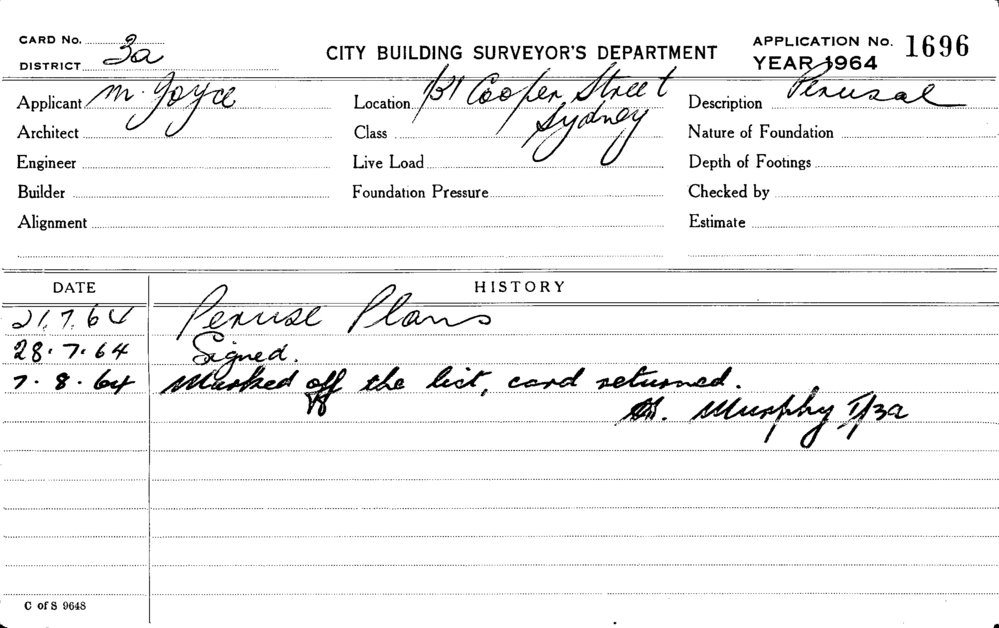 CARD No.
DISTRICT 3a
CITY BUILDING SURVEYOR'S DEPARTMENT
APPLICATION No. 1696
YEAR 1964
Applicant M. Joyce
Location 131 Cooper Street
Sydney
Description Perusal
Architect
Class
Nature of Foundation
Engineer
Live Load
Depth of Footings
Builder
Foundation Pressure
Checked by
Alignment
Estimate
DATE HISTORY
21.7.64 Peruse Plans
28.7.64 Signed.
7.8.64 Marked off the list, card returned.
Murphy
C of S 9648